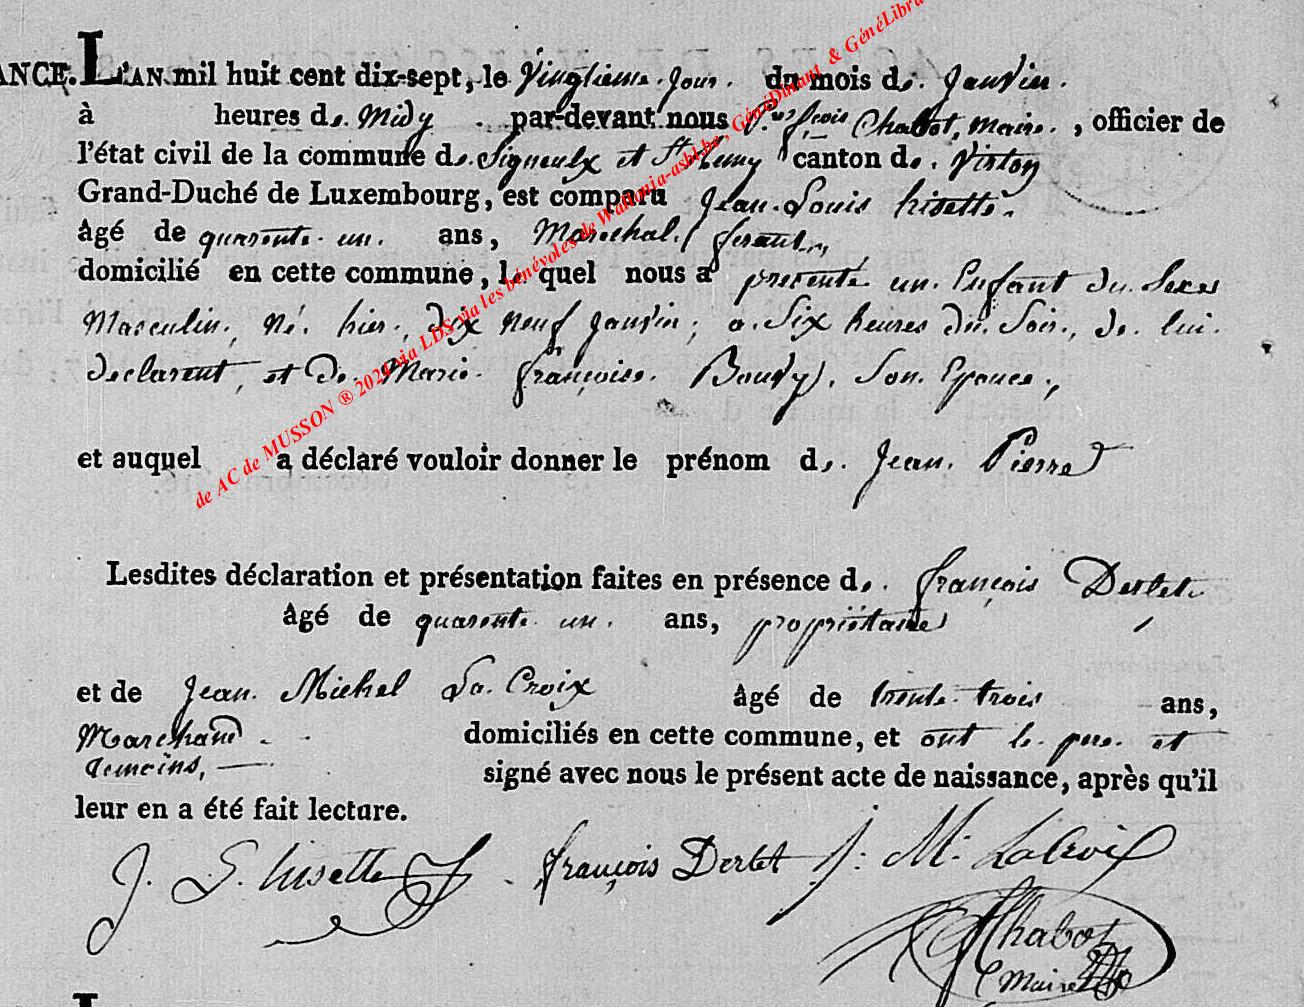 ANCE. L'AN mil huit cent dix-sept, le Vingtieme Jour du mois de Janvier
à heures de Midy par-devant nous fçois Chabot, maire, officier de
l'état civil de la commune de Signeulx et St Remy canton de Virton
Grand-Duché de Luxembourg, est comparu Jean Louis hisette
âgé de quarente un ans, Marechal ferant,
domicilié en cette commune, le quel nous a presenté un Enfant du Sexes
Masculin, Né hier, dix neuf janvier, a Six heures du Soir, de lui
declarent, et de Marie françoise Boudy, Son Epouce,
et auquel a déclaré vouloir donner le prénom de Jean Pierre
Lesdites déclaration et présentation faites en présence de françois Derlet
âgé de quarente un ans, propriétaire
et de Jean Michel La Croix âgé de trente trois ans,
Marchand domiciliés en cette commune, et ont le pere et
temoins, signé avec nous le présent acte de naissance, après qu'il
leur en a été fait lecture.
J. L. hisette françois Derlet J. M. LaCroix
Chabot
Maire
de AC de MUSSON ® 2024 via LDS via les bénévoles de Wallonia-asbl.be, GénéDinant & GénéLibra